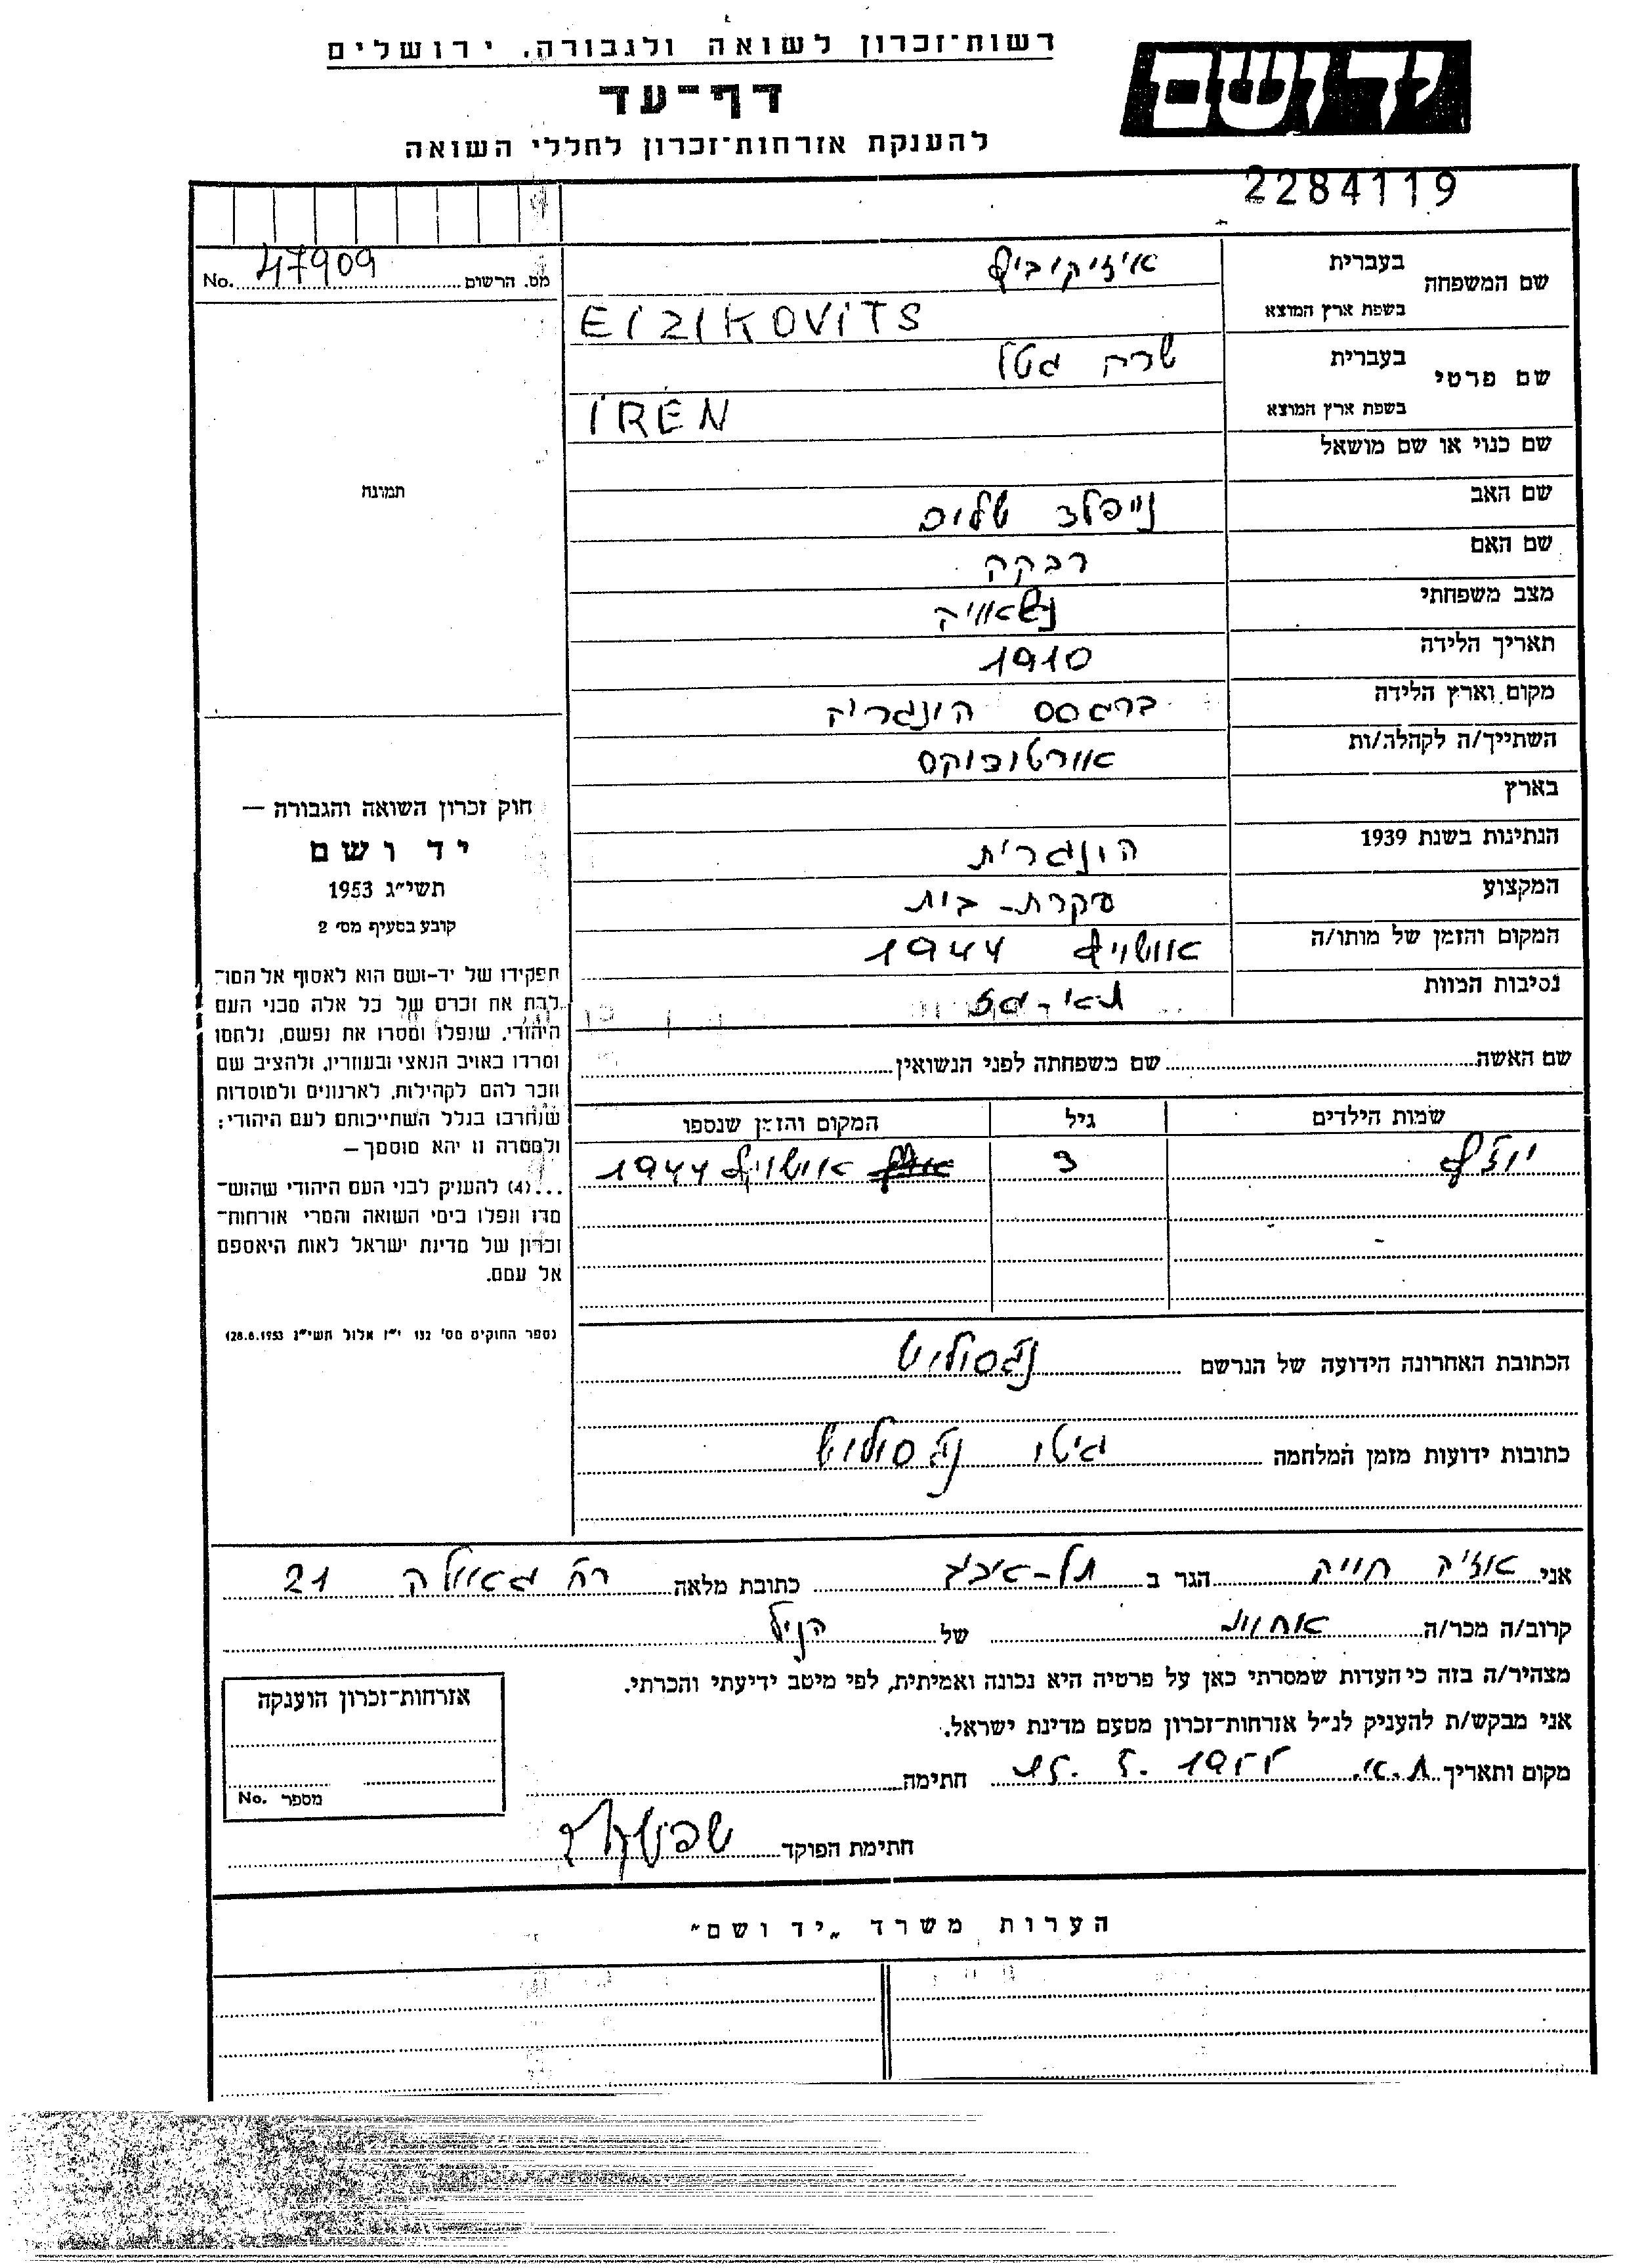 רשות־זכרון לשואה ולגבורה, ירושלים
יד ושם
דף־עד
להענקת אזרחות־זכרון לחללי השואה
2284119
מס. הרשום 47909 No.
שם המשפחה
בעברית איזיקוביץ
בשפת ארץ המוצא EIZIKOVITS
שם פרטי
בעברית שרה גטל
בשפת ארץ המוצא IREN
שם כנוי או שם מושאל
שם האב נייפלד שלום
שם האם רבקה
מצב משפחתי נשאויה
תאריך הלידה 1910
מקום וארץ הלידה ברגסס הונגריה
השתייך/ה לקהלה/ות אורטודוקס
בארץ
הנתינות בשנת 1939 הונגרית
המקצוע עקרת-בית
המקום והזמן של מותו/ה אושויץ 1944
נסיבות המוות תאי-גז
תמונה
חוק זכרון השואה והגבורה —
יד ושם
תשי״ג 1953
קובע בסעיף מס׳ 2
תפקידו של יד-ושם הוא לאסוף אל המו־
לדת את זכרם של כל אלה מבני העם
היהודי, שנפלו ומסרו את נפשם, נלחמו
ומרדו באויב הנאצי ובעוזריו, ולהציב שם
וזכר להם לקהילות, לארגונים ולמוסדות
שנחרבו בגלל השתייכותם לעם היהודי;
ולמטרה זו יהא מוסמך —
...(4) להעניק לבני העם היהודי שהוש־
מדו ונפלו בימי השואה והמרי אזרחות־
זכרון של מדינת ישראל לאות היאספם
אל עמם.
(ספר החוקים מס׳ 132 י״ז אלול תשי״ג 28.8.1953)
שם האשה שם משפחתה לפני הנשואין
שמות הילדים גיל המקום והזמן שנספו
יוזף 3 אושויץ 1944
הכתובת האחרונה הידועה של הנרשם נגסולוש
כתובות ידועות מזמן המלחמה גיטו נגסולוש
אני חייה הגר ב תל-אביב כתובת מלאה רח׳ גאולה 21
קרוב/ה מכר/ה של הנ״ל
מצהיר/ה בזה כי העדות שמסרתי כאן על פרטיה היא נכונה ואמיתית, לפי מיטב ידיעתי והכרתי.
אני מבקש/ת להעניק לנ״ל אזרחות־זכרון מטעם מדינת ישראל.
מקום ותאריך ת.א. חתימה
חתימת הפוקד
אזרחות־זכרון הוענקה
מספר No.
הערות משרד „יד ושם״